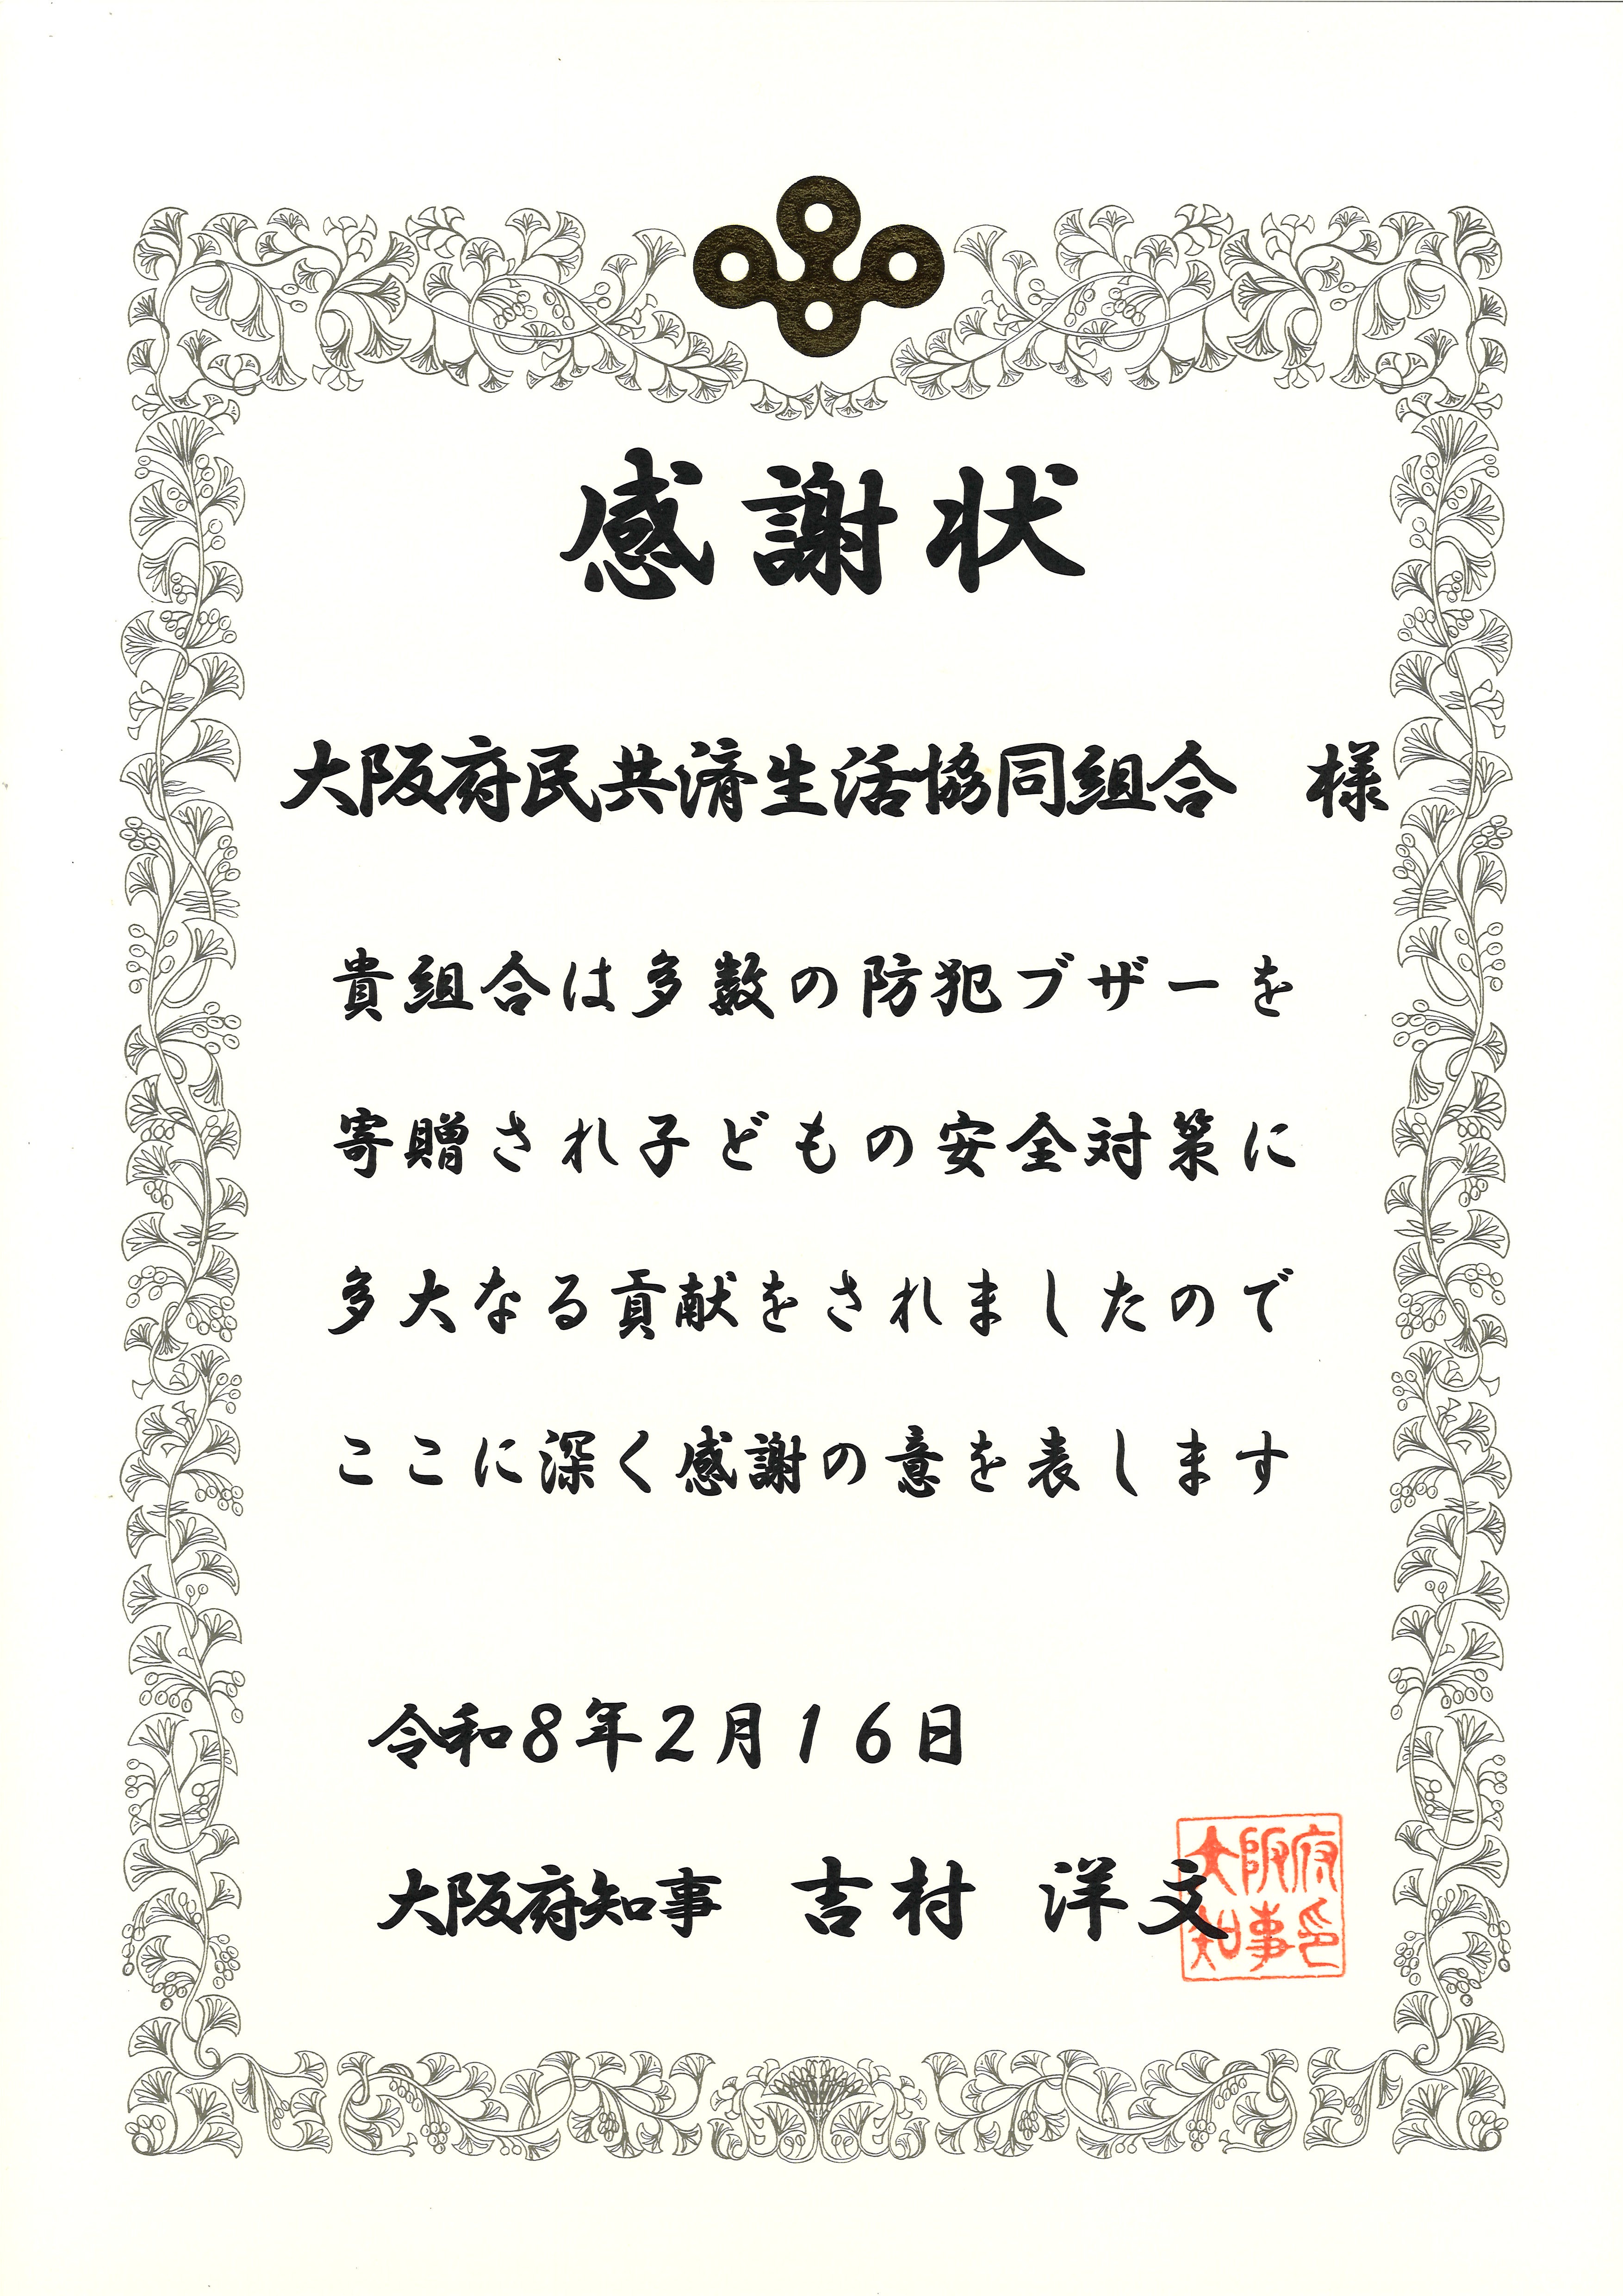 感謝状
大阪府民共済生活協同組合　様
貴組合は多数の防犯ブザーを
寄贈され子どもの安全対策に
多大なる貢献をされましたので
ここに深く感謝の意を表します
令和８年２月１６日
大阪府知事　吉村　洋文
大阪府
知事印